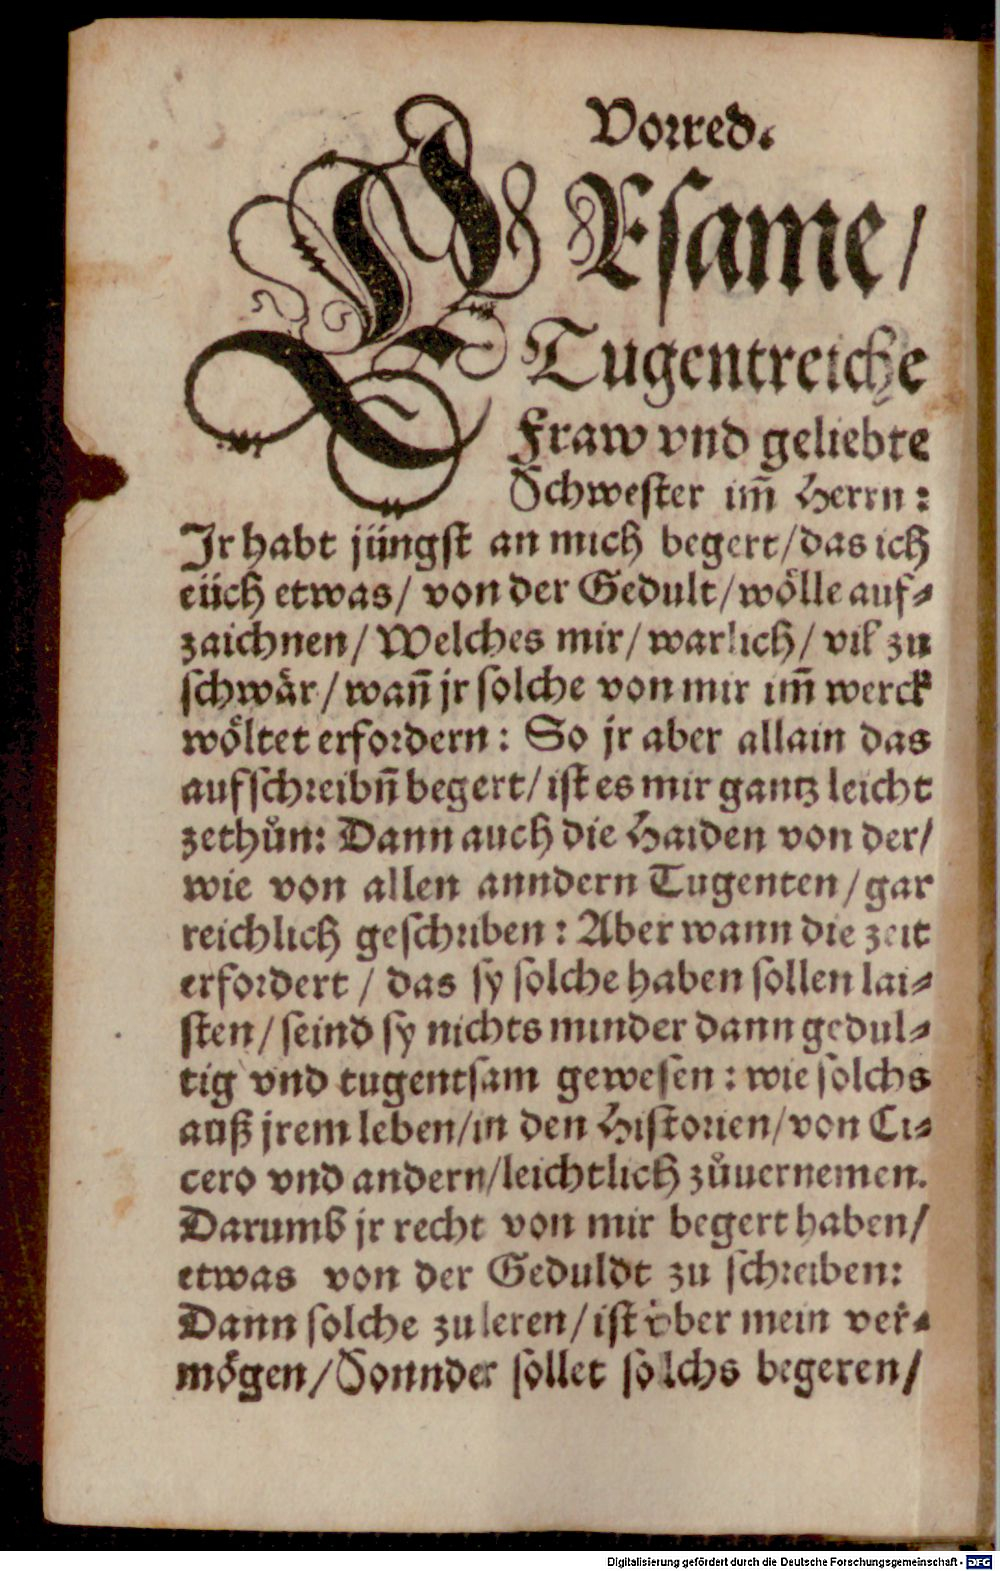 Vorred.
ERsame/
Tugentreiche
Fraw vnd geliebte
Schwester im̃ Herrn:
Ir habt jüngst an mich begert/das ich
eüch etwas/ von der Gedult/wölle auf⸗
zaichnen/Welches mir/warlich/ vil zu
schwär/wañ jr solche von mir im̃ werck
wöltet erfordern: So jr aber allain das
aufschreibñ begert/ist es mir gantz leicht
zethůn: Dann auch die Haiden von der/
wie von allen anndern Tugenten/gar
reichlich geschriben: Aber wann die zeit
erfordert/ das sy solche haben sollen lai⸗
sten/seind sy nichts minder dann gedul⸗
tig vnd tugentsam gewesen: wie solchs
auß jrem leben/in den Historien/von Ci⸗
cero vnd andern/leichtlich zůuernemen.
Darumb jr recht von mir begert haben/
etwas von der Geduldt zu schreiben:
Dann solche zu leren/ist vber mein ver⸗
mögen/Sonnder sollet solchs begeren/
Digitalisierung gefördert durch die Deutsche Forschungsgemeinschaft - DFG